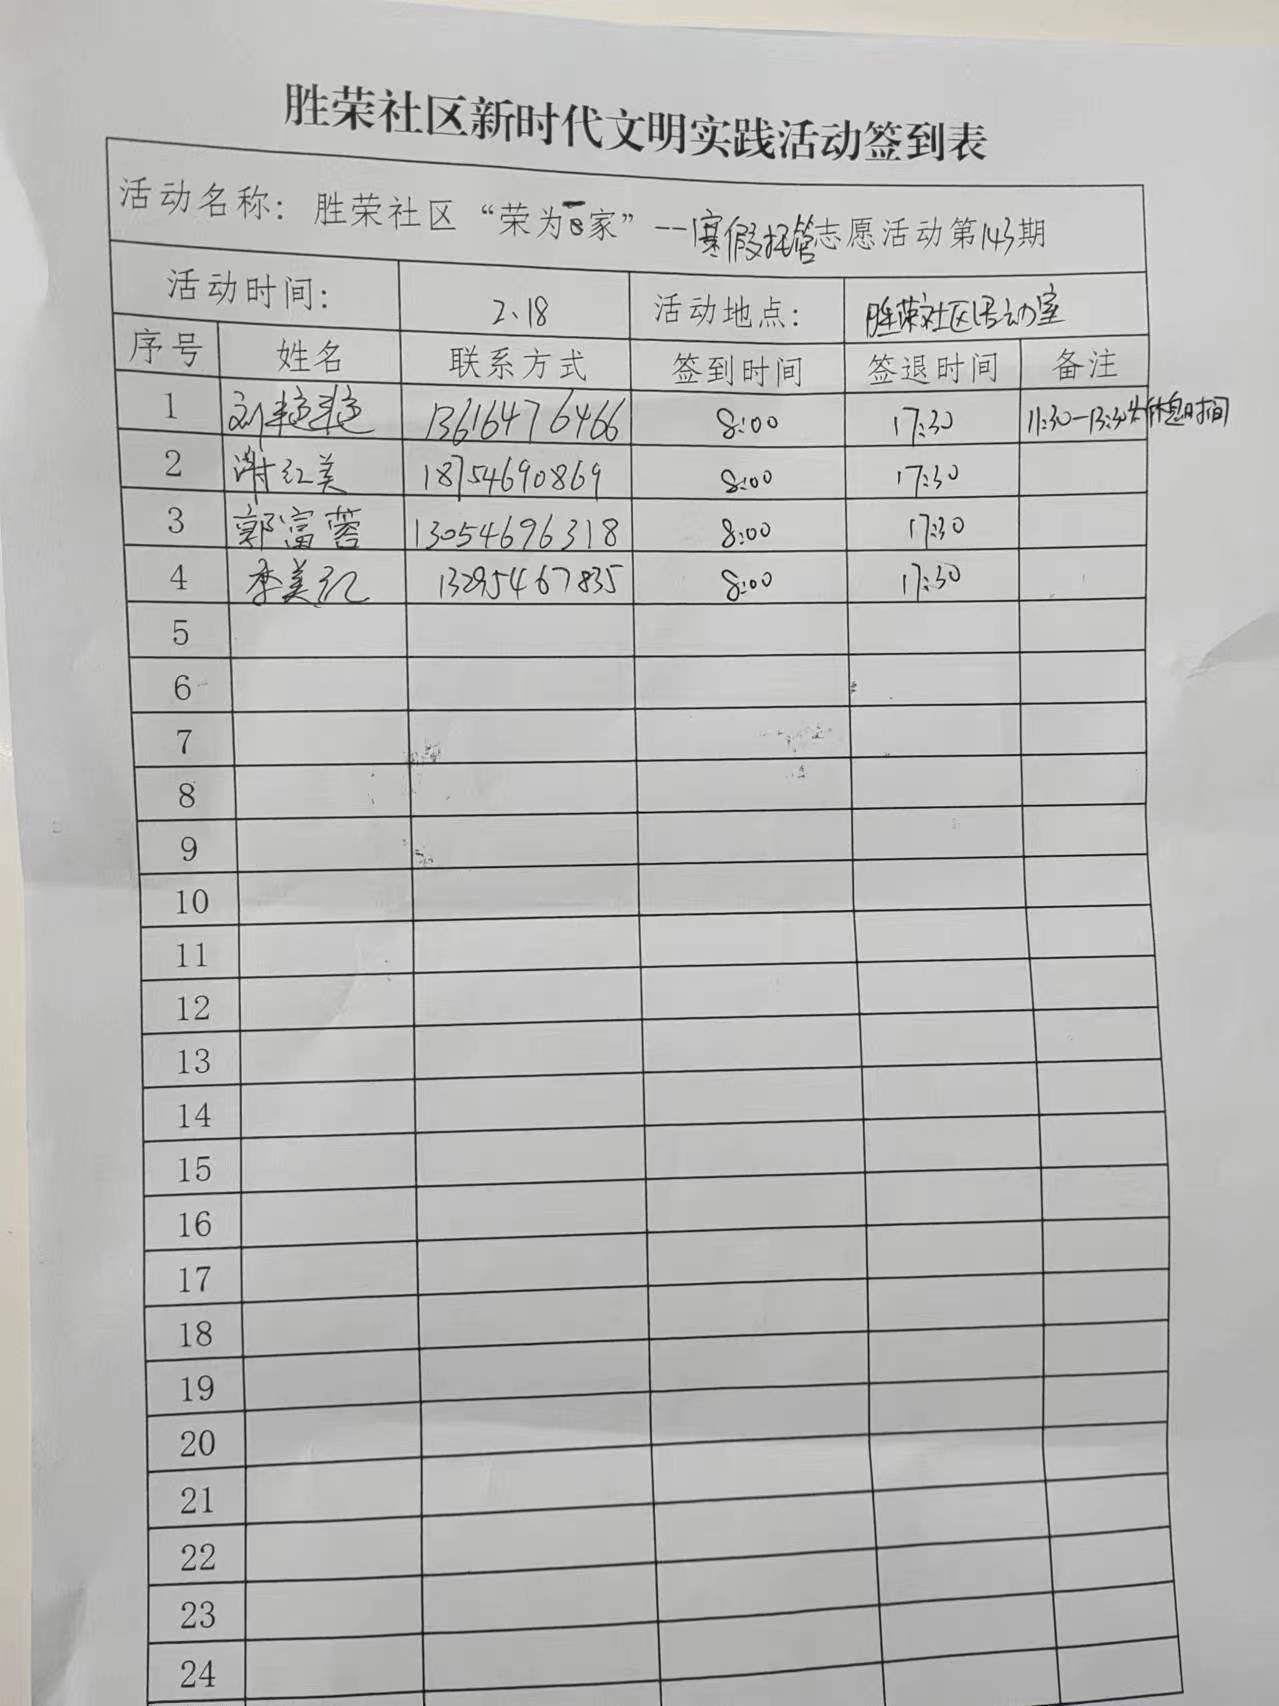 胜荣社区新时代文明实践活动签到表
活动名称：胜荣社区“荣为一家”--寒假托管志愿活动第143期
活动时间： 2、18 活动地点： 胜荣社区活动室
序号 姓名 联系方式 签到时间 签退时间 备注
1 刘 13616476466 8:00 17:30 11:30-13:30为休息时间
2 谢红美 18754690869 8:00 17:30
3 郭富蓉 13054696318 8:00 17:30
4 李美红 13295467835 8:00 17:30
5
6
7
8
9
10
11
12
13
14
15
16
17
18
19
20
21
22
23
24